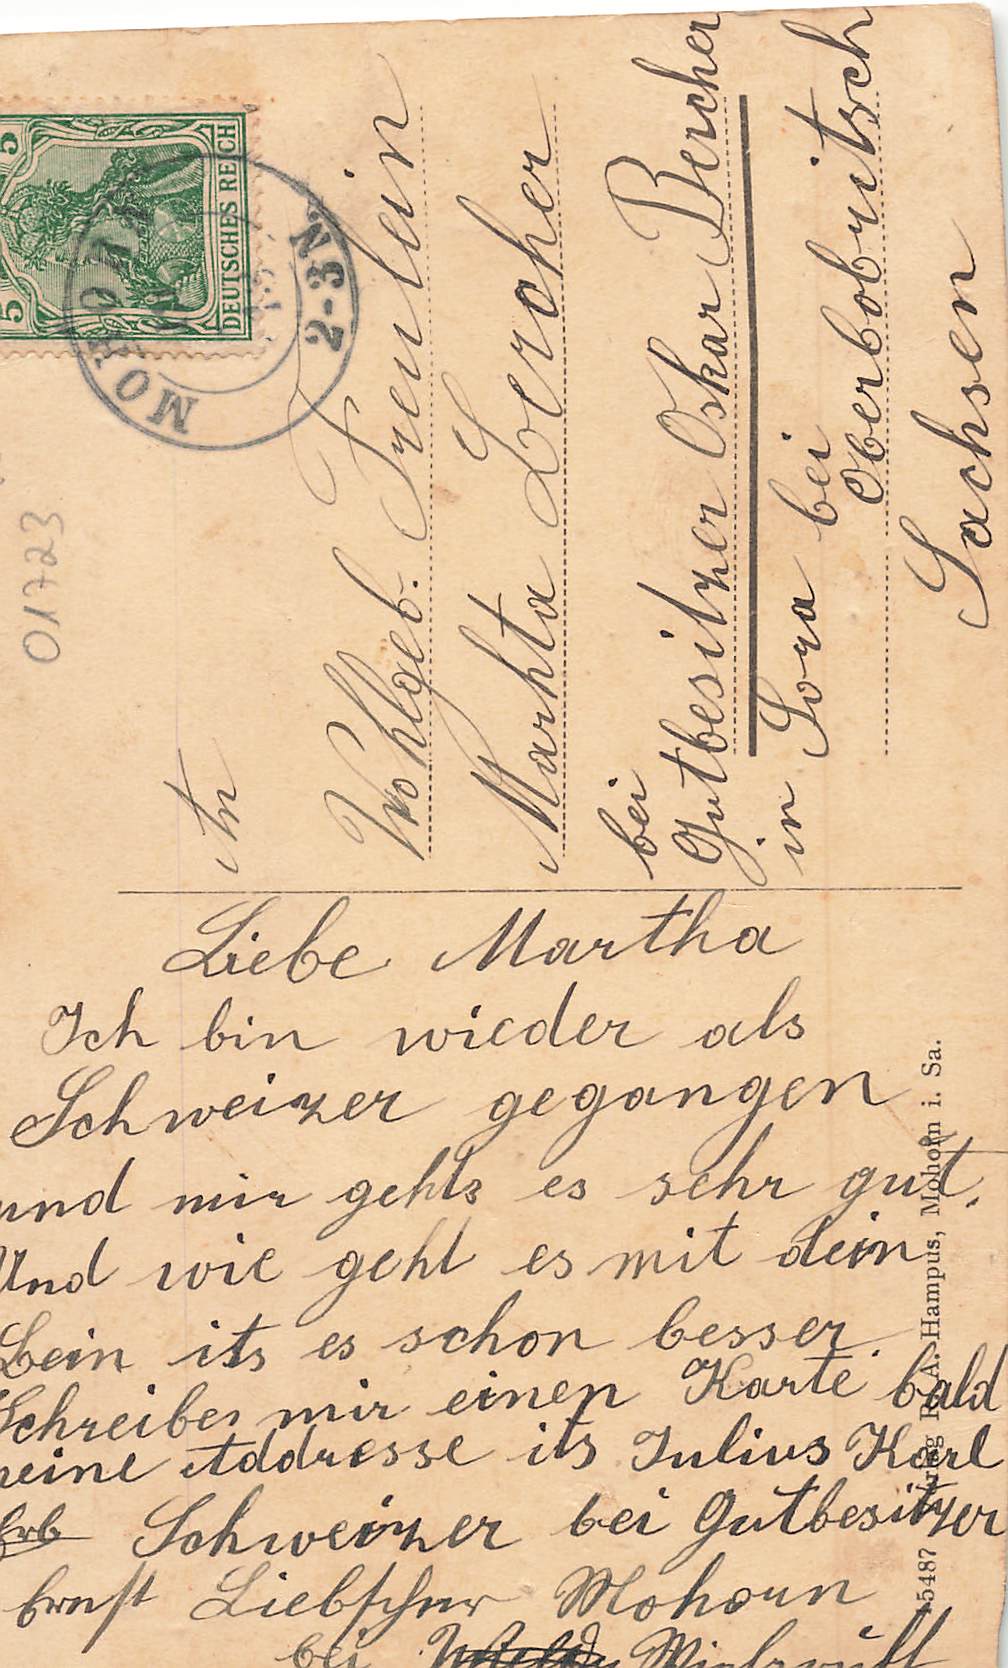 5
5
DEUTSCHES REICH
MOHORN
2-3N.
01723
An
Wohlgeb. Freulein
Marhta Lercher
bei
Gutbesitzer Oskar Bercher
in Sora bei
Oberbobritsch
Sachsen
Liebe Martha
Ich bin wieder als
Schweizer gegangen
und mir gehts es sehr gut.
Und wie geht es mit dein
Bein its es schon besser.
Schreibe mir einen Karte bald
meine Addresse its Julius Karl
Erb Schweizer bei Gutbesitzer
Ernst Liebscher Mohorn
bei Wilsdruff
15487 Verlag R. A. Hampus, Mohorn i. Sa.